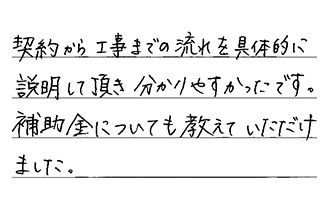 契約から工事までの流れを具体的に
説明して頂き分かりやすかったです。
補助金についても教えていただけ
ました。